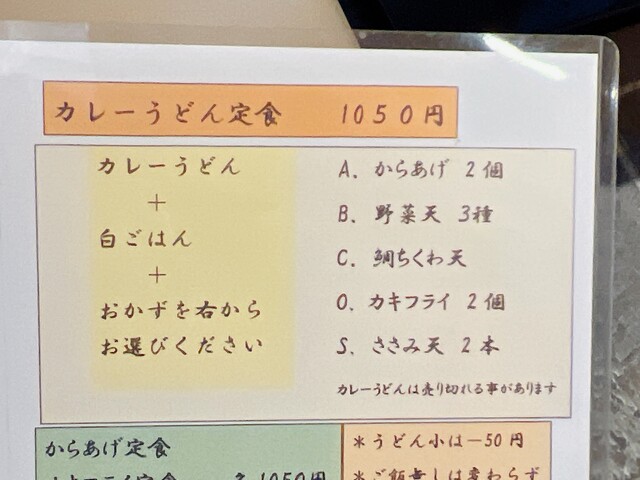 カレーうどん定食 1050円
カレーうどん
＋
白ごはん
＋
おかずを右から
お選びください
A. からあげ 2個
B. 野菜天 3種
C. 鯛ちくわ天
O. カキフライ 2個
S. ささみ天 2本
カレーうどんは売り切れる事があります
からあげ定食
1050円
＊うどん小は－50円
＊ご飯無しは変わらず